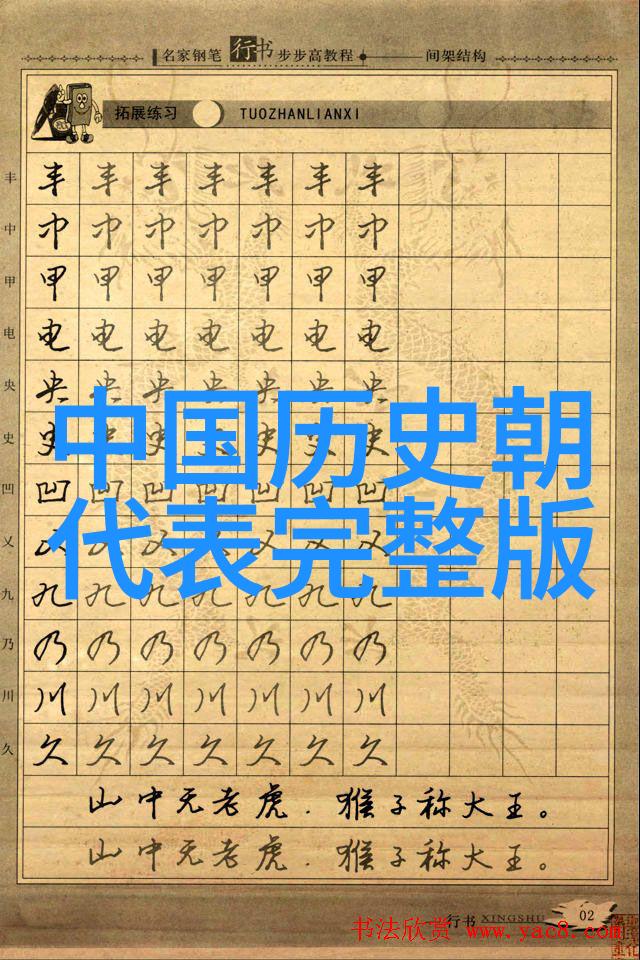 名家钢笔 行书 步步高教程 间架结构
拓展练习 TUOZHANLIANXI
丰 丰 丰 丰 丰 丰 丰 丰
中 中 中 中 中 中 中 中
甲 甲 甲 甲 甲 甲 甲 甲
电 电 电 电 电 电 电 电
央 央 央 央 央 央 央 央
中国历史朝
史 史 史 史 史 史 史 史
凹 凹 凹 凹 凹 凹 凹 凹
代表完整版
乂 乂 乂 乂 乂 乂 乂 乂
九 九 九 九 九 九 九 九
乃 乃 乃 乃 乃 乃 乃 乃
川 川 川 川 川 川 川 川
久 久 久 久 久 久 久 久
山中无老虎．猴子称大王。
山中无老虎．猴子称大王。
行书 XINGSHU 02
书法欣赏 www.yac8.com